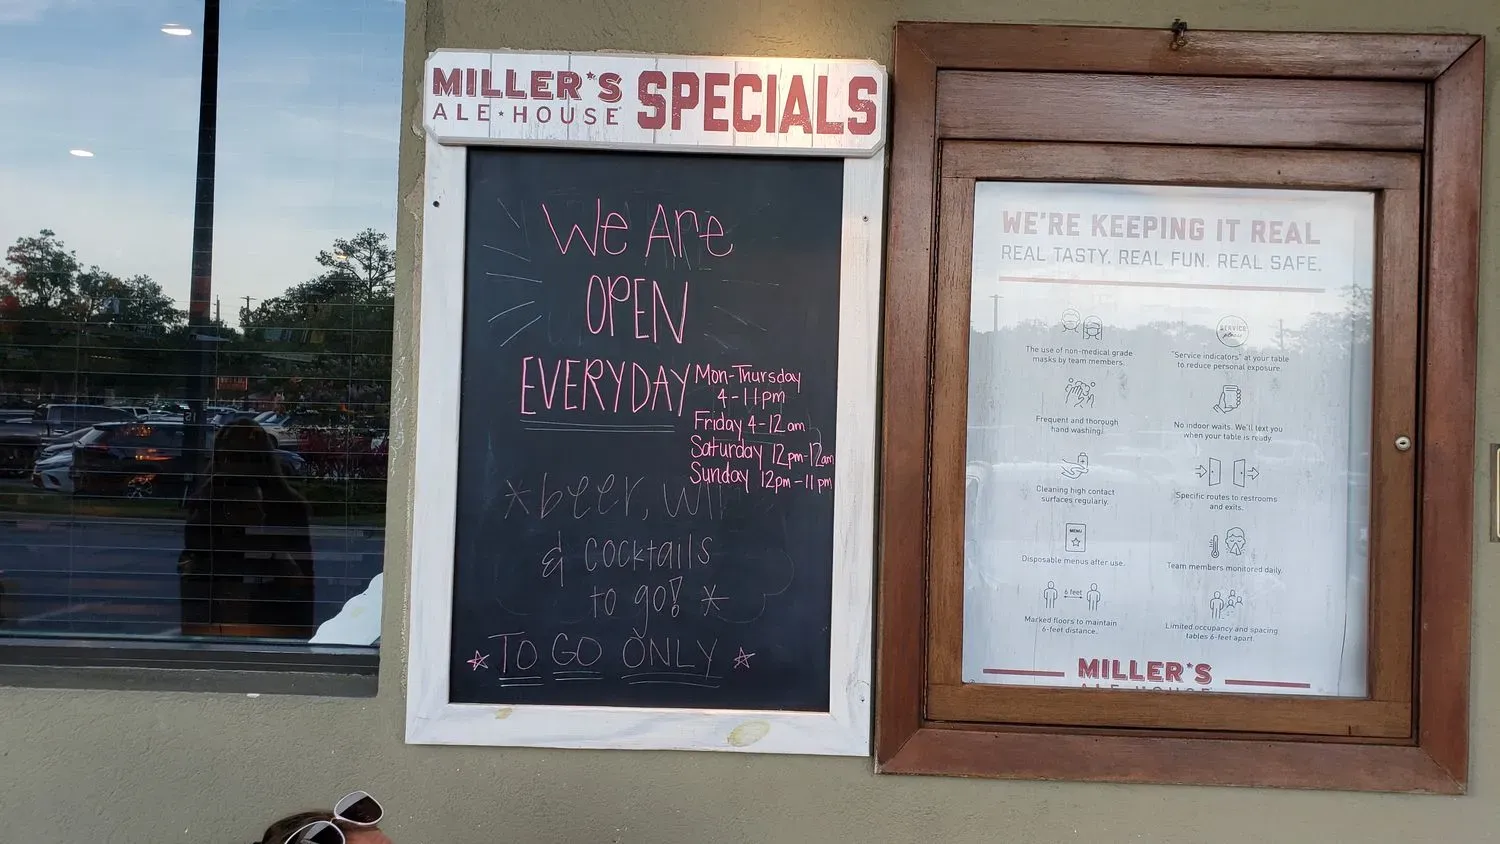 MILLER'S
ALE HOUSE
SPECIALS
We Are
OPEN
EVERYDAY
Mon-Thursday
4-11pm
Friday 4-12am
Saturday 12pm-12am
Sunday 12pm-11pm
*beer,
& cocktails
to go! *
TO GO ONLY
WE'RE KEEPING IT REAL
REAL TASTY. REAL FUN. REAL SAFE.
The use of non-medical grade
masks by team members.
SERVICE
please
"Service indicators" at your table
to reduce personal exposure.
Frequent and thorough
hand washing!
No indoor waits. We'll text you
when your table is ready.
Cleaning high contact
surfaces regularly.
Specific routes to restrooms
and exits.
MENU
Disposable menus after use.
Team members monitored daily.
6 feet
Marked floors to maintain
6-feet distance.
Limited occupancy and spacing
tables 6-feet apart.
MILLER'S
ALE HOUSE